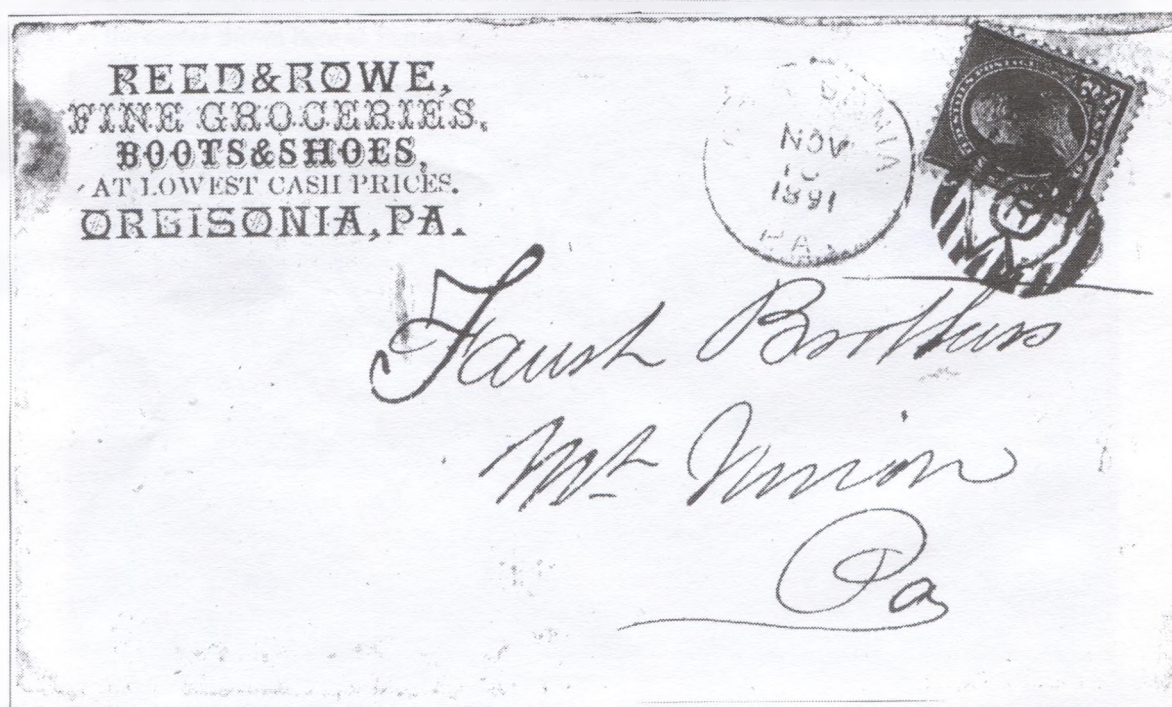 REED & ROWE,
FINE GROCERIES,
BOOTS & SHOES,
AT LOWEST CASH PRICES.
ORBISONIA, PA.
NOV
1891
PA
Faust Brothers
Mt Union
Pa